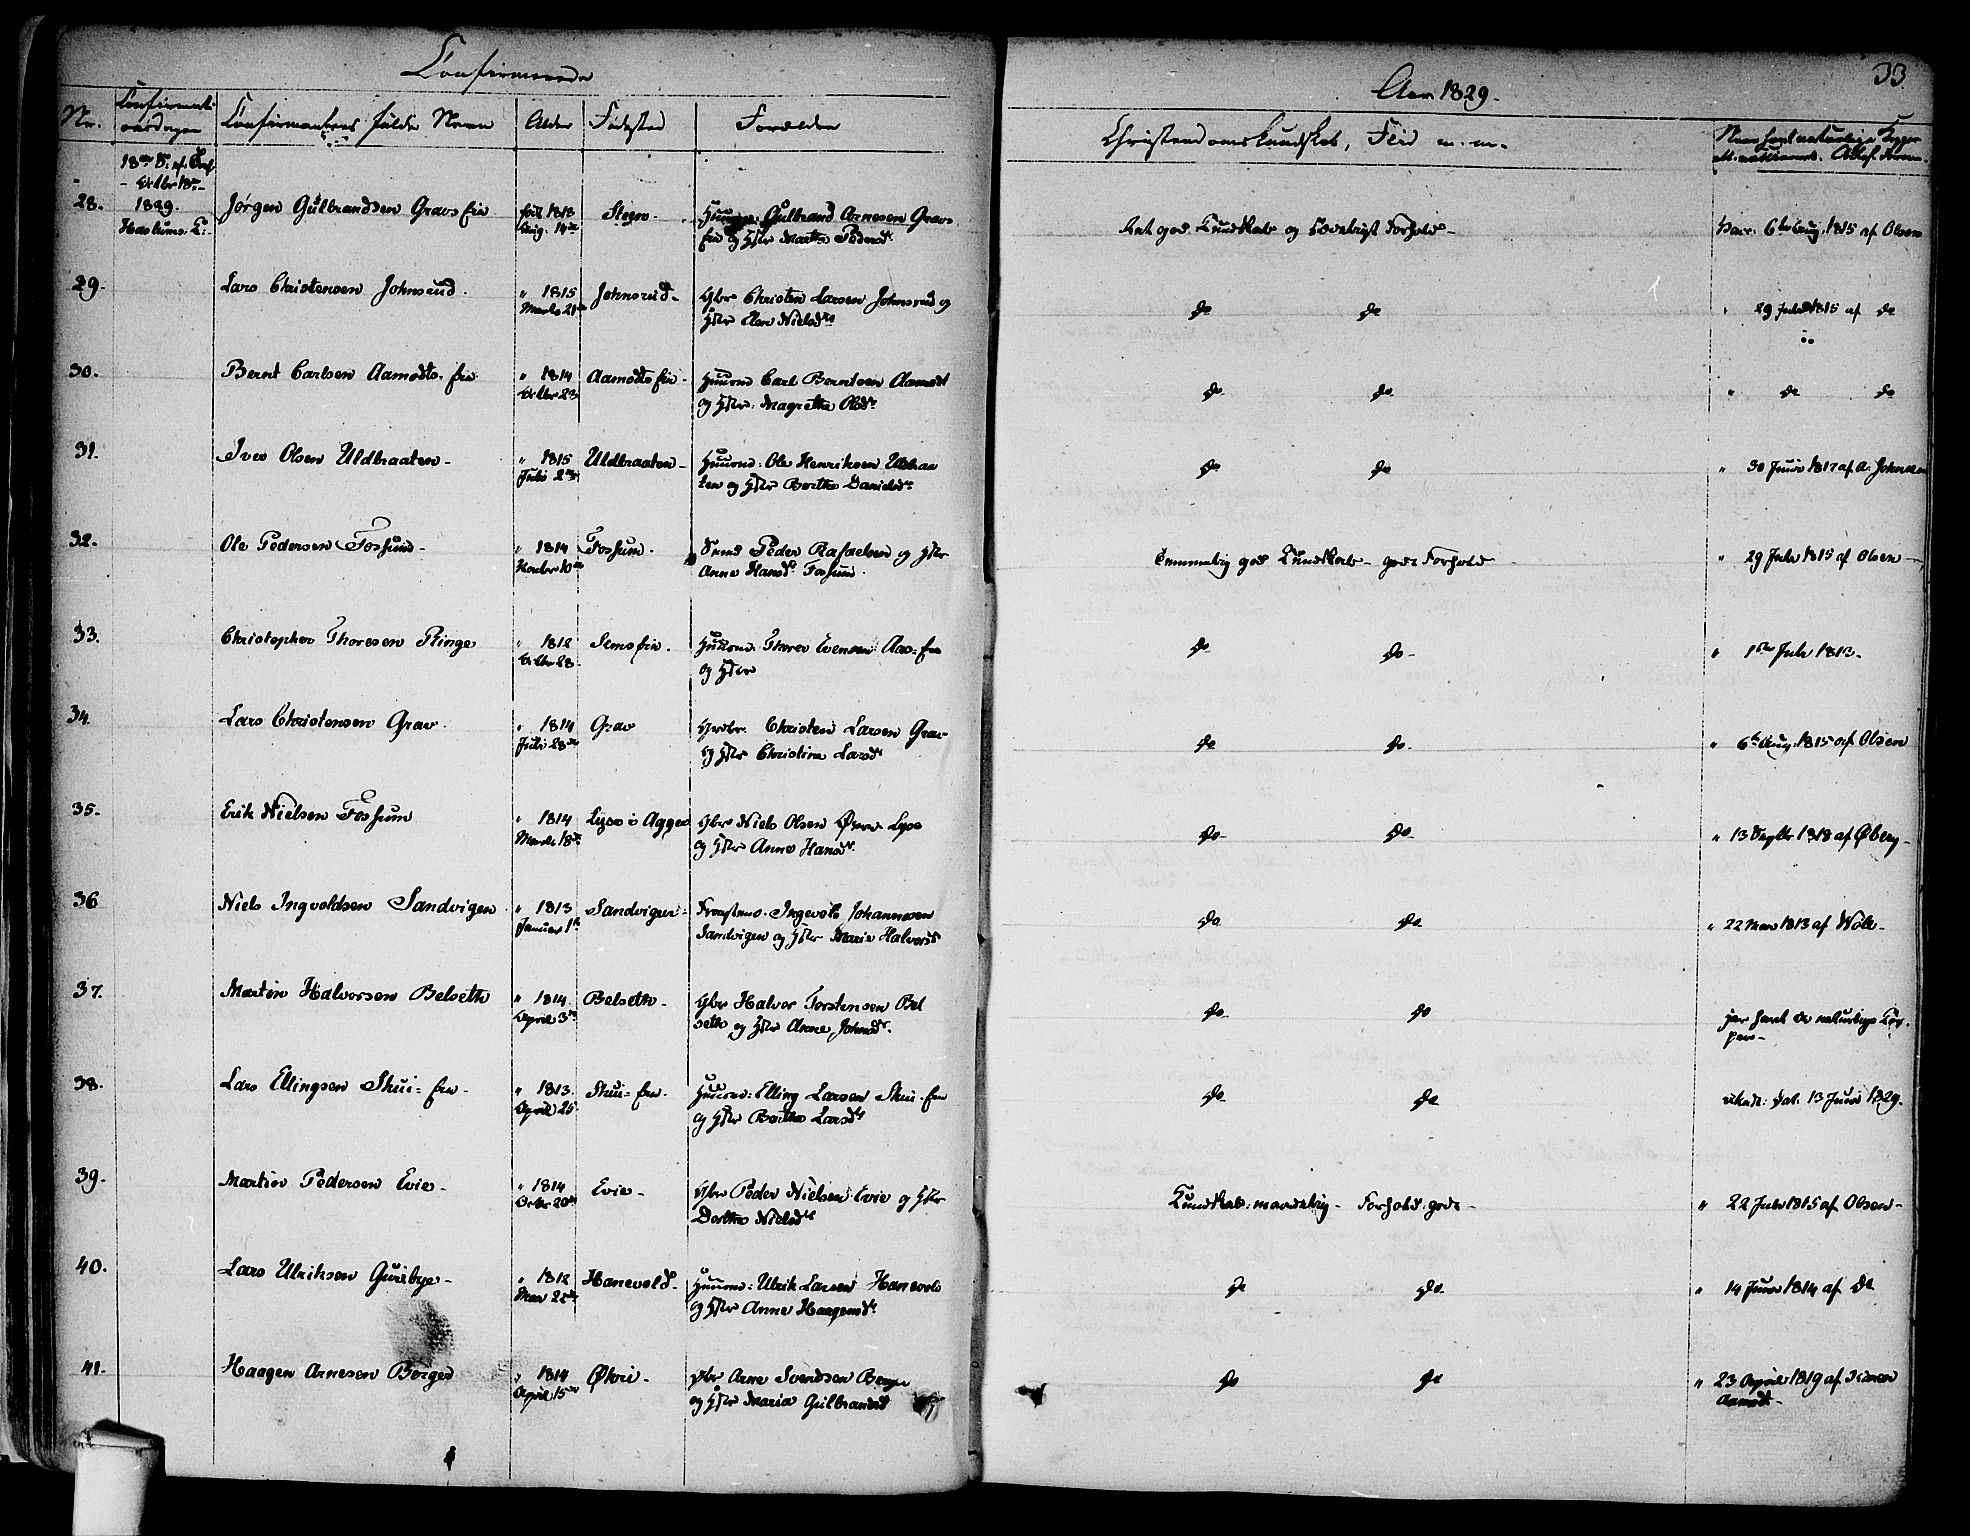 Confirmerede
Nr. Confirmationsdagen Confirmantens fulde Navn Alder Fødested Forældre
28. 1829. Haslums K: Jørgen Gulbrandsen Gravs eie født 1813 Aug. 14de Gulbrand Arnesen Gravs
eie og Hstr Marthe Pedersd
29. Lars Christensen Johnsrud " 1815 Marts 21de Johnsrud Gbr Christen Larsen Johnsrud og
Hstr Nielsd
30. Bernt Carlsen Aamodts eie " 1814 Octbr 23 Aamodts eie Huusmd Carl Berntsen Aamodt
og Hstr. Magrethe Olsd
31. Iver Olsen Uldbraaten " 1815 Juli 2den Uldbraaten Huusmd: Ole Henriksen Uldbraa
ten og Hstr Berthe Danielsd
32. Ole Pedersen Fossum " 1814 Novbr 10de Fossum Peder Rafaelsen og Hstr
Anne Hansd Fossum
33. Christopher Thoresen Ringe " 1812 Octbr 28 Huusmd: Thorer Evensen Aas-eie
og Hstr
34. Lars Christensen Grav " 1814 Juli 28de Grav Christen Larsen Grav
og Hstr Christine Larsd
35. Erik Nielsen Fossum " 1814 Marts 18de Lyse i Agger Gbr Niels Olsen Øvre Lyse
og Hstr Anne Hansd
36 Niels Ingvoldsen Sandvigen " 1813 Januar 1ste Sandvigen Ingevold Johannesen
Sandvigen og Hstr Marie Halvorsd
37. Martin Halvorsen Belseth " 1814 April 3die Belseth Gbr Halvor Torstensen Bel
seth og Hstr Anne Johnsd
38. Lars Ellingsen Skui-eie " 1813 April 25 Skui-eie Huusmd: Elling Larsen Skui-eie
og Hstr Berthe Larsd
39. Martin Pedersen Evie " 1814 Octbr 20de Evie Gbr Peder Nielsen Evie og Hstr
Dorthe Nielsd
40. Lars Ulriksen Gursbye " 1812 Mai 25de Hanevold Huusmd: Ulrik Larsen Hanevold
og Hstr Anne Haagensd
41. Haagen Arnesen Berger " 1814 April 15de Øverie Gbr Arne Svendsen Berger
og Hstr Maria Gulbrandsd
Aar 1829.
33
Christendomskundskab, Flid m. m.
Ret god Kundskab og sædeligt Forhold
Vacc. 6te Aug. 1815 af Olsen
do do " 29 Juli 1815 af do
do do " do do
do do " 30 Juni 1817 af A. Johnsen
Temmelig god Kundskab - godt Forhold " 29 Juli 1815 af Olsen
do do " 1ste Juli 1813.
do do " 6te Aug. 1815 af Olsen
do do " 13 Septbr 1818 af Øberg
do do " 22 Mai 1813 af Wold
do do har havt de naturlige Kop-
per
do do 13 Juni 1829.
Kundskab: maadelig - Forhold: godt " 22 Juli 1815 af Olsen
do do " 14 Juni 1814 af do
do do " 23 April 1819 af Simen
Aamodt